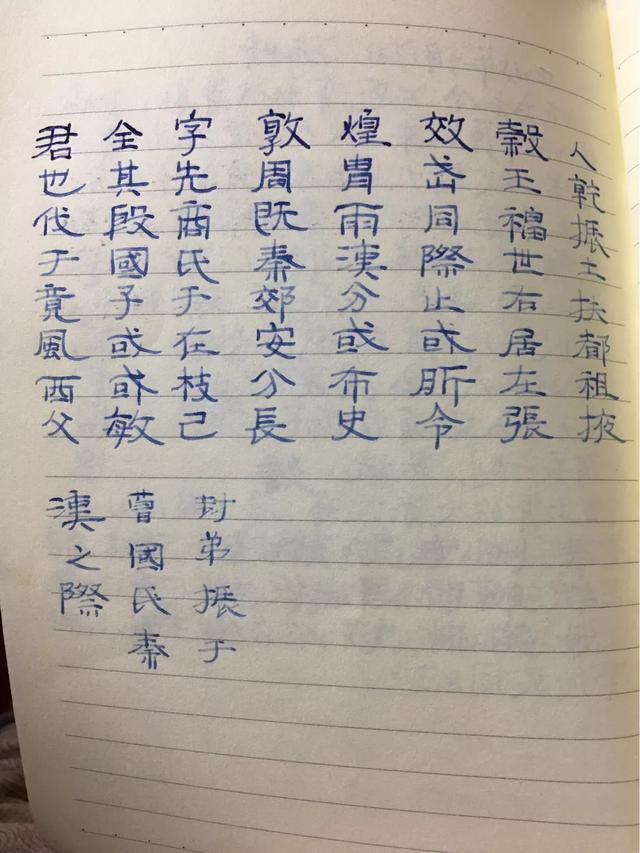 君全字敦煌效穀人
也其先周冑武王乾
伐殷商既雨同福振
于國氏秦漢際世土
竟子于郊分止右扶
風或在安或或居都
西或枝分布所左祖
父敏己長史令張掖
封弟振于
曹國氏秦
漢之際